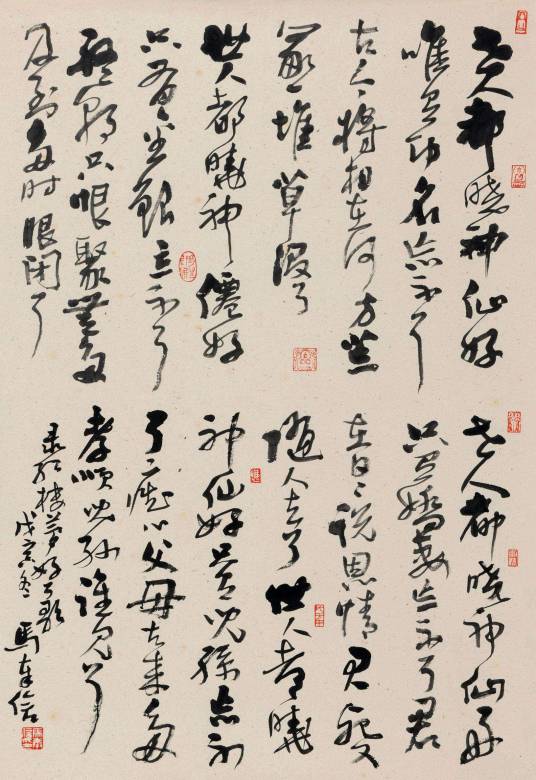 世人都晓神仙好
唯有功名忘不了
古今将相在何方荒
冢一堆草没了
世人都曉神僊好
只有金銀忘不了
终朝只恨聚無多
及到多时眼闭了
世人都晓神仙好
只有嬌妻忘不了君
在日日说恩情君死又
随人去了世人都曉
神仙好只有兒孫忘不
了痴心父母古来多
孝順兒孙谁见了
录红楼梦好了歌
戊寅冬 馬奉信